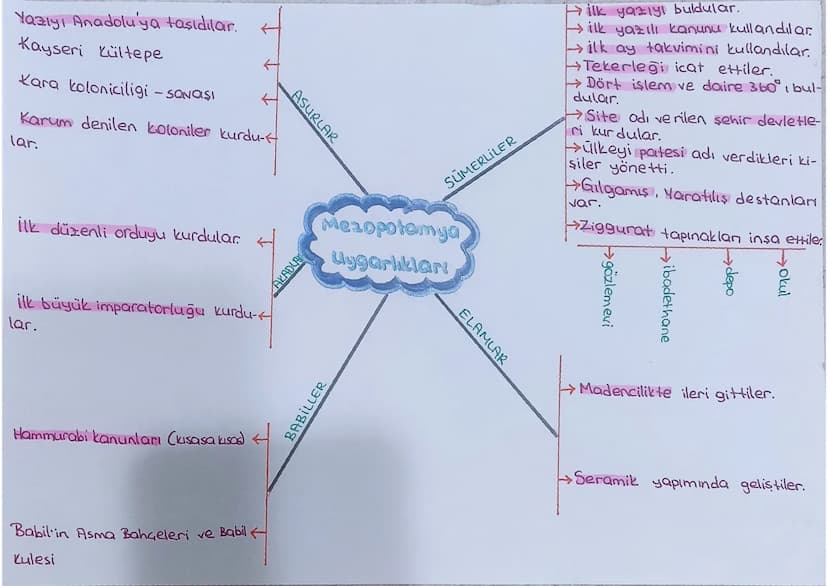 Mezopotamya
Uygarlıkları
ASURLAR
Yazıyı Anadolu'ya taşıdılar.
Kayseri Kültepe
Kara koloniciliği - savaşı
Karum denilen koloniler kurdu-
lar.
AKADLAR
İlk düzenli orduyu kurdular.
İlk büyük imparatorluğu kurdu-
lar.
BABİLLER
Hammurabi kanunları (kısasa kısas)
Babil'in Asma Bahçeleri ve Babil
Kulesi
SÜMERLİLER
İlk yazıyı buldular.
İlk yazılı kanunu kullandılar.
İlk ay takvimini kullandılar.
Tekerleği icat ettiler.
Dört işlem ve daire 360° ı bul-
dular.
Site adı verilen şehir devletle-
ri kurdular.
Ülkeyi patesi adı verdikleri ki-
şiler yönetti.
Gılgamış, Yaratılış destanları
var.
Ziggurat tapınakları inşa ettiler
gözlemevi
ibadethane
depo
okul
ELAMLAR
Madencilikte ileri gittiler.
Seramik yapımında geliştiler.